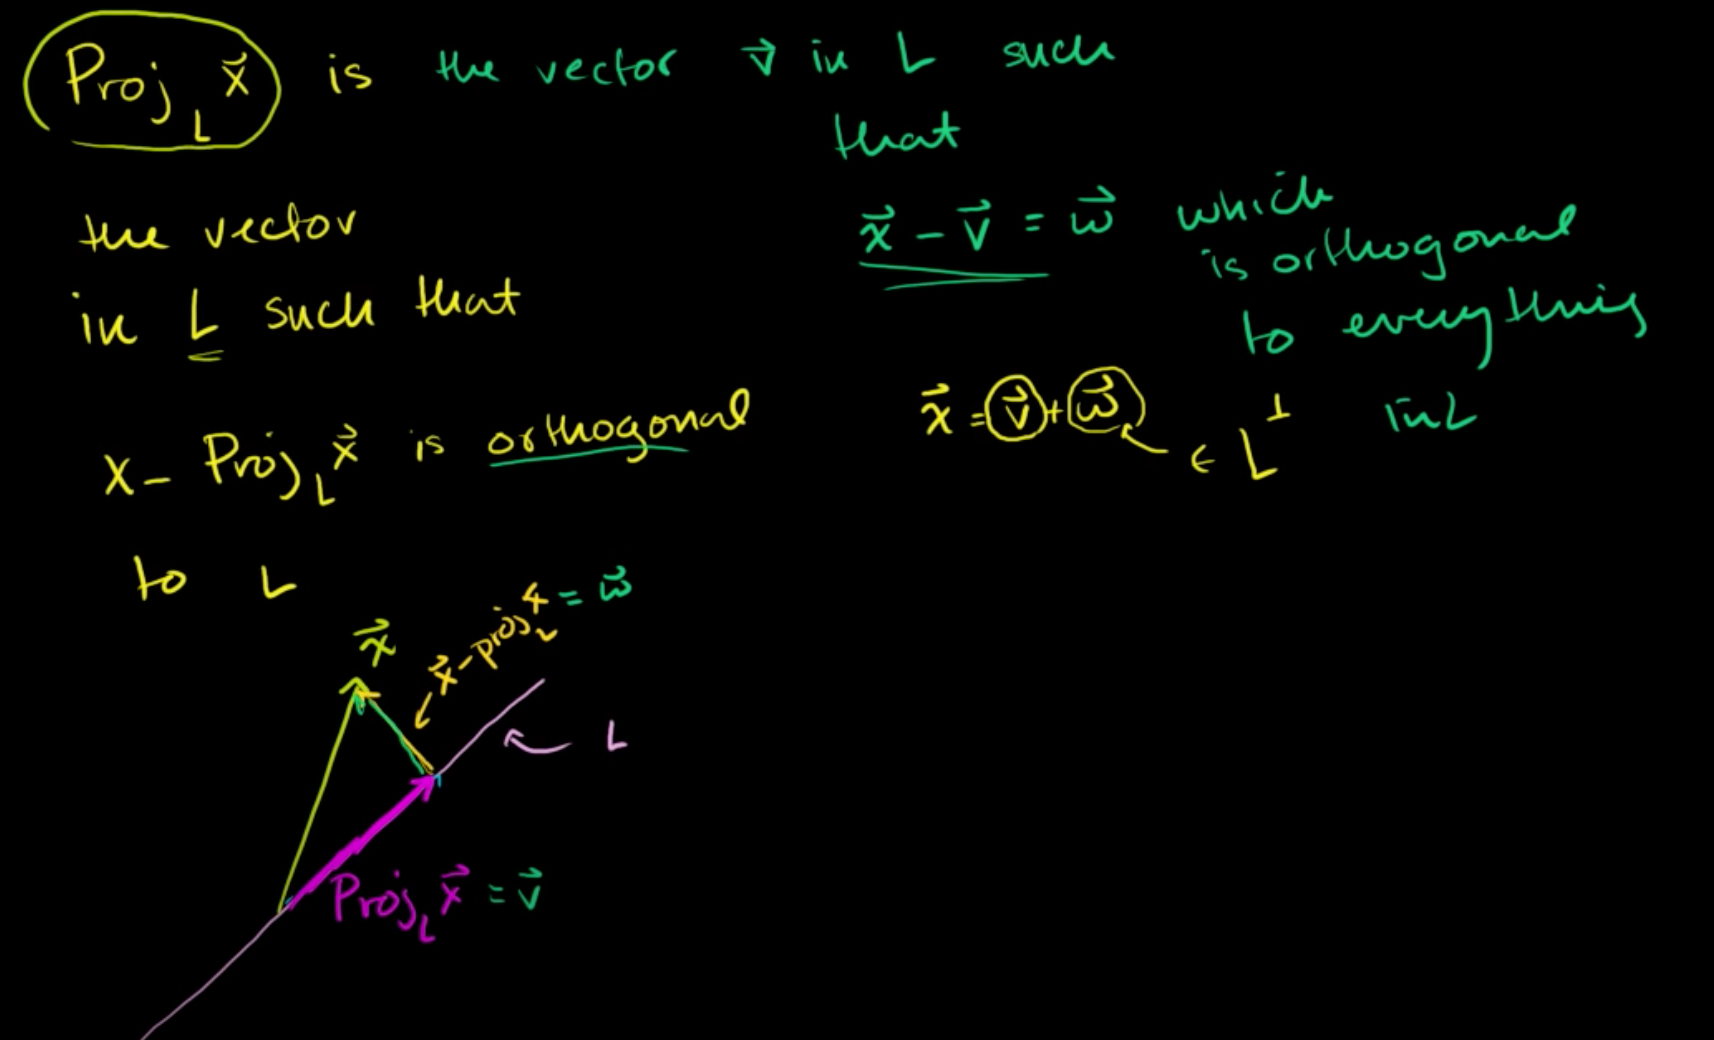 Proj_L x⃗ is the vector v⃗ in L such
that
x⃗ - v⃗ = w⃗ which
is orthogonal
to everything
in L
x⃗ = v⃗ + w⃗ ∈ L^⊥
the vector
in L such that
x - Proj_L x⃗ is orthogonal
to L
x⃗
x⃗ - proj_L x = w⃗
L
Proj_L x⃗ = v⃗